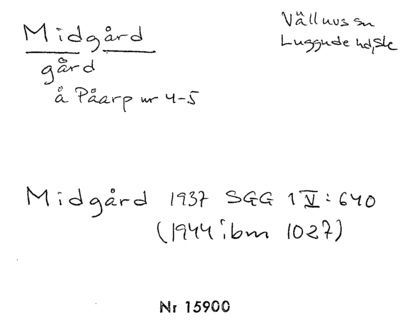 Midgård
Välluvs sn
Luggude hd, Sk
gård
å Påarp nr 4-5
Midgård 1937 SGG 1 V: 640
(1944 ibm 1027)
Nr 15900